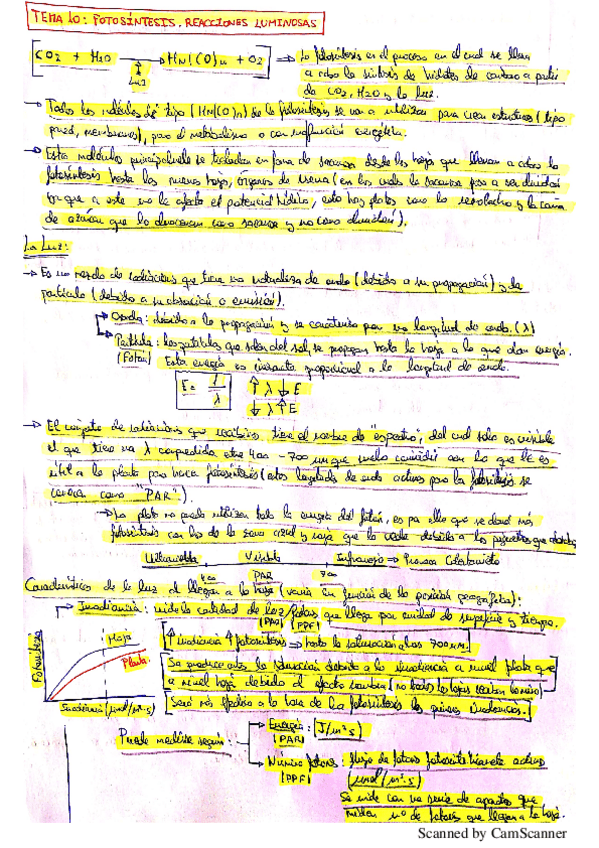 TEMA 10: FOTOSÍNTESIS. REACCIONES LUMINOSAS
CO2 + H2O → Hn(CO)n + O2 ⇒ La fotosíntesis es el proceso en el cual se lleva
Luz
a cabo la síntesis de hidratos de carbono a partir
de CO2, H2O y la luz.
→ Todas las moléculas de tipo (Hn(CO)n) de la fotosíntesis se van a utilizar para crear estructuras (tipo
pared, membranas), para el metabolismo o con función energética.
→ Estas moléculas principalmente se trasladan en forma de sacarosa desde las hojas que llevan a cabo la
fotosíntesis hasta las nuevas hojas, órganos de reserva (en los cuales la sacarosa pasa a ser almidón
ya que a este no le afecta el potencial hídrico, esto hay plantas como la remolacha y la caña
de azúcar que lo almacenan como sacarosa y no como almidón).
La Luz:
→ Es una mezcla de radiaciones que tiene una naturaleza de onda (debido a su propagación) y de
partícula (debido a su absorción o emisión).
→ Onda: debido a la propagación y se caracteriza por una longitud de onda. (λ)
→ Partícula: las partículas que salen del sol, se propagan hasta la hoja a la que dan energía.
(Fotón) Esta energía es inversamente proporcional a la longitud de onda.
E = 1/λ ↑λ ↓E
↓λ ↑E
→ El conjunto de radiaciones que recibimos tiene el nombre de "espectro", del cual solo es visible
el que tiene una λ comprendida entre 400 - 700 nm que coincide con la que es
útil a la planta para hacer fotosíntesis (estas longitudes de onda activas para la fotosíntesis se
conocen como "PAR").
→ La planta no puede utilizar toda la energía del fotón, es por ello que se dará más
fotosíntesis con los de la zona azul y roja que la verde debido a los pigmentos que
Ultravioleta Visible Infrarrojo ⇒ Provoca Calentamiento
400 PAR 700
Características de la luz al llegar a la hoja (varía en función de la posición geográfica):
→ Irradiancia: mide la cantidad de luz/fotones que llega por unidad de superficie y tiempo.
(PAR) (PPF)
Fotosíntesis
Hoja
Planta
Irradiancia (μmol/m²·s)
↑ irradiancia ↑ fotosíntesis ⇒ hasta la saturación a las 700 μM.
Se produce antes la saturación debido a la irradiancia a nivel planta que
a nivel hoja debido al efecto sombra (no todas las hojas reciben lo mismo)
Será más efectiva la tasa de la fotosíntesis a irradiancias.
Puede medirse según:
→ Energía: [J/m²·s]
(PAR)
→ Número fotones: flujo de fotones fotosintéticamente activos
(PPF) (μmol/m²·s)
Se mide con una serie de aparatos que
miden nº de fotones que llegan a la hoja.
Scanned by CamScanner